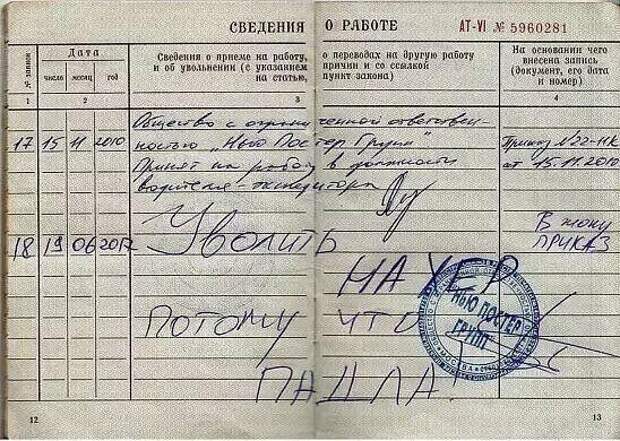 СВЕДЕНИЯ О РАБОТЕ АТ-VI № 5960281
№ записи
Дата
число месяц год
Сведения о приеме на работу, о переводах на другую работу
и об увольнении (с указанием причин и со ссылкой
на статью, пункт закона)
На основании чего
внесена запись
(документ, его дата
и номер)
1 2 3 4
Общество с ограниченной ответствен-
17 15 11 2010 ностью "Нью Постер Групп" Приказ №22-НК
Принят на работу в должности от 15.11.2010
водителя-экспедитора
18 19 06 2017 Уволить В жопу
ПРИКАЗ
НА ХЕР
ПОТОМУ ЧТО
ПАДЛА.
НЬЮ ПОСТЕР
ГРУПП
МОСКВА
12 13